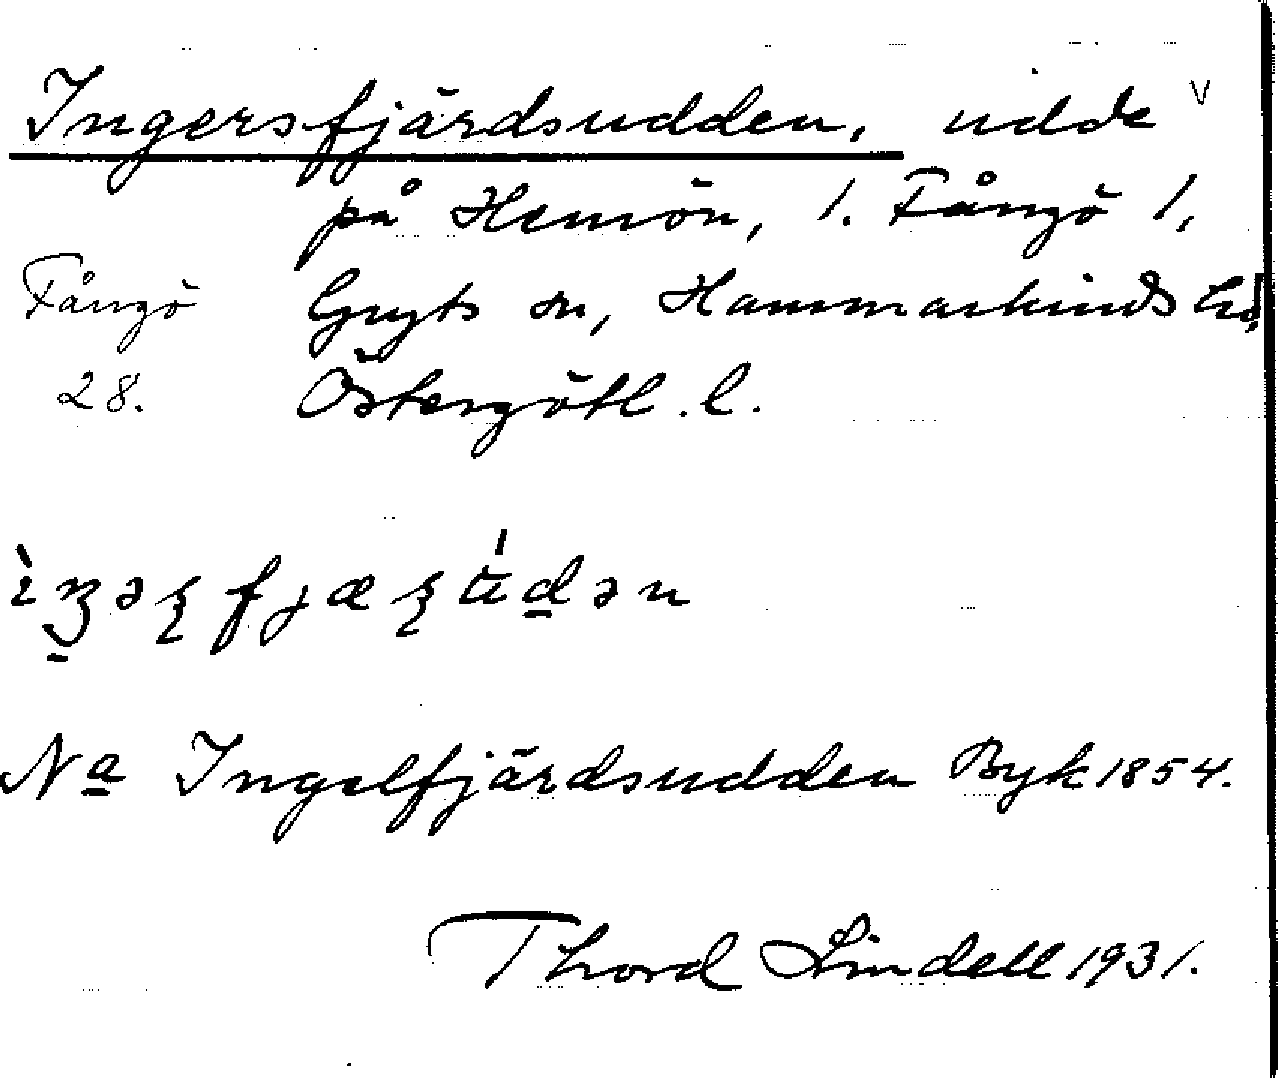 Ingersfjärdsudden, udde v
på Hemön, 1. Fångö 1,
Fångö Gryts sn, Hammarkinds hd,
28. Östergötl. l.
Na Ingelfjärdsudden Byk 1854.
Thord Lindell 1931.